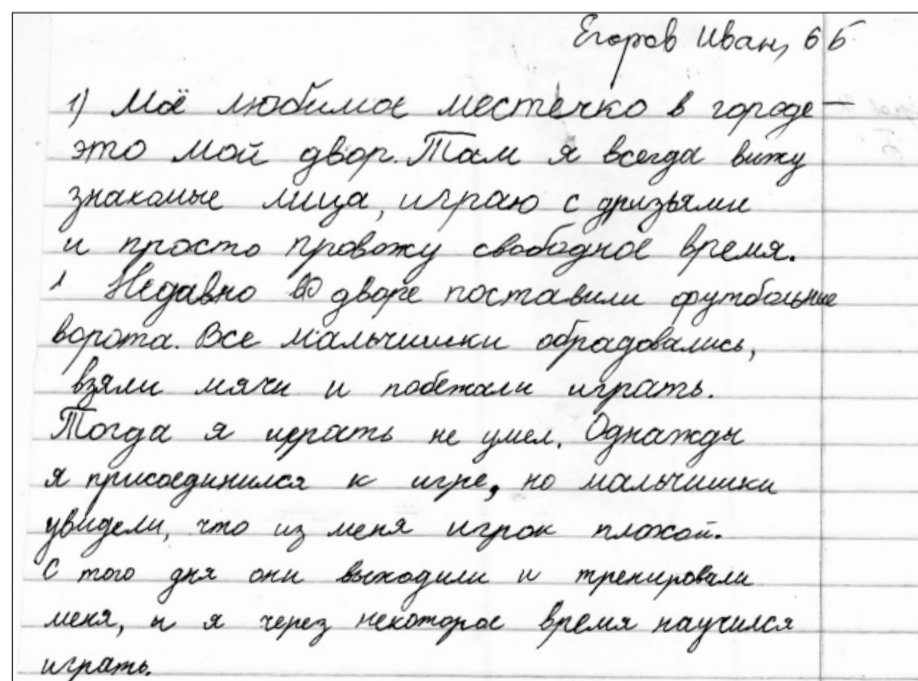 Егоров Иван, 6 Б
1) Моё любимое местечко в городе —
это мой двор. Там я всегда вижу
знакомые лица, играю с друзьями
и просто провожу свободное время.
Недавно во дворе поставили футбольные
ворота. Все мальчишки обрадовались,
взяли мячи и побежали играть.
Тогда я играть не умел. Однажды
я присоединился к игре, но мальчишки
увидели, что из меня игрок плохой.
С того дня они выходили и тренировали
меня, и я через некоторое время научился
играть.